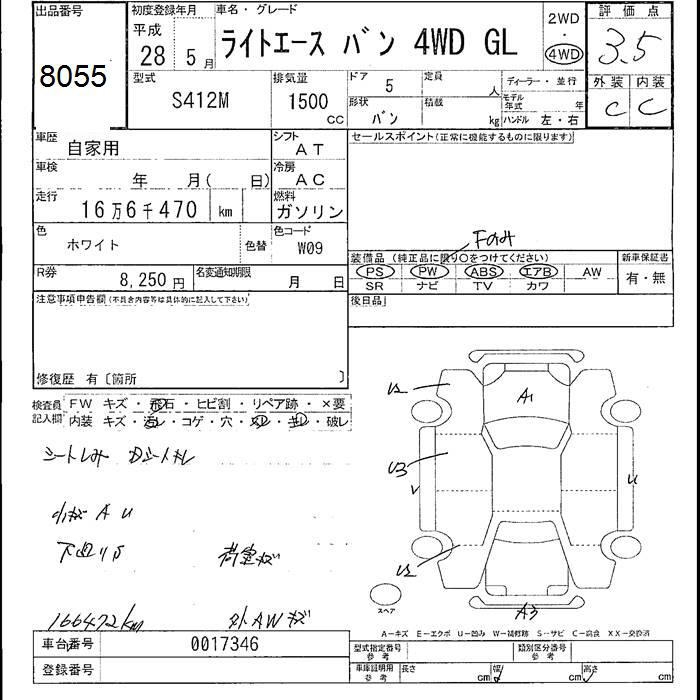 出品番号
8055
初度登録年月
平成
28 5月
車名・グレード
ライトエース バン 4WD GL
2WD
・
4WD
評価点
3.5
外装 内装
C C
型式
S412M
排気量
1500
CC
ドア 5
定員 人
形状 バン
積載 kg
ディーラー・並行
モデル年式 年
ハンドル 左・右
車歴 自家用
シフト
AT
車検 年 月( 日)
冷房
AC
走行 16万6千470 km
燃料
ガソリン
色 ホワイト 色替
色コード
W09
R券 8,250円
名変通知期限 月 日
セールスポイント(正常に機能するものに限ります)
装備品 (純正品に限り○をつけてください)
PS PW ABS エアB AW
SR ナビ TV カワ
新車保証書
有・無
後日品
注意事項申告欄(不具合内容等は具体的に記入して下さい)
修復歴 有〔箇所 〕
検査員記入欄
FW キズ・飛石・ヒビ割・リペア跡・×要
内装 キズ・汚レ・コゲ・穴・スレ・キレ・破レ
小キズ A U
166472km
外AWキズ
A1
U2
U3
V
U
U2
A3
スペア
A-キズ E-エクボ U-凹み W-補修跡 S-サビ C-腐食 XX-交換済
車台番号 0017346
登録番号
型式指定番号 参考
類別区分番号 参考
車庫証明用 参考
長さ cm
幅 cm
高さ cm